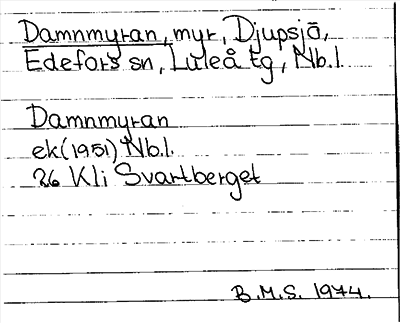 Damnmyran, myr, Djupsjö,
Edefors sn, Luleå tg, Nb.l.
Damnmyran
ek(1951) Nb.l.
26 Kli Svartberget
B.M.S. 1974.